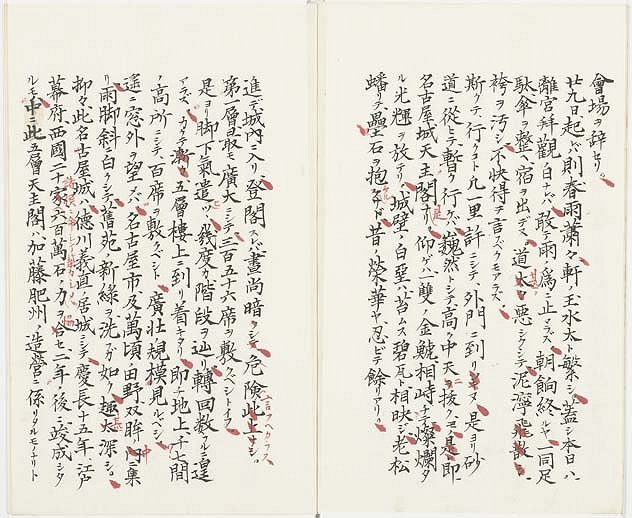 會場ヲ辞セリ。
廿九日起バ則春雨蕭々軒玉水太ト繁シ蓋シ本日ハ
離宮拜觀日ナハ敢テ雨爲ニ止マラス朝餉終ルヤ一同足
駄傘ヲ整ヘ宿ヲ出デス、道太甚ノ悪シクシテ泥濘飛散シ
袴ヲ汚シ不快得テ言ズクモアラズ
斯クテ、行クコト凡一里許ニシテ、外門ニ到リキヌ是ヨリ砂
道ニ從ヒテ暫ク行ケバ巍然トシテ高ク中天ニ抜クモノ是即
名古屋城天主閣ナリ是ヲ仰ゲハ一雙ノ金鯱相峙チ燦爛タ
ル光輝ヲ放チ、城壁ノ白堊ハ苔ムス碧瓦ト相映ジ老松
蟠リテ壘石ヲ抱キ昔ノ榮華ヤ忍ビテ餘リアリ。
進ンデ城内ニ入リ登閣スレバ晝尚暗クシテ危険此上ナシ。言フヘカラス
第一層最モ廣大ニシテ三百五十六席ヲ敷クベシトイフ
是ヨリ脚下氣遣ヒツヽ幾度カ階段ヲ辿リ轉回数フルニ遑
アラズ、カクテ漸ク五層樓上ニ到リ着キタリ即チ地上千七間
ノ高所ニシテ百席ヲ敷クベシ廣壮規模見ルベシ。
遥ニ窓外ヲ望メバ名古屋市及萬頃田野双眸ノ内ニ集中
リ雨脚斜ニ白クシテ舊苑ノ新緑ヲ洗フガ如ク趣太甚深シ。
抑々此名古屋城ハ徳川義直ノ居城ニシテ慶長十五年、江戸
幕府西國二十家六百萬石ノ力ヲ合セ二年後ニ竣成シタ
ルモノ中ニ此五層天主閣ハ加藤肥州ノ造營ニ係リタルモノナリト